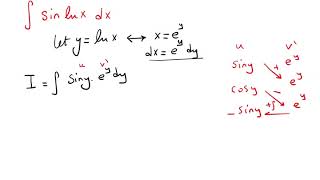 ∫ sin lnx dx
let y = lnx ⟷ x = e^y
dx = e^y dy
I = ∫ siny · e^y dy
u v'
u v'
siny + e^y
cosy − e^y
−siny +∫ e^y